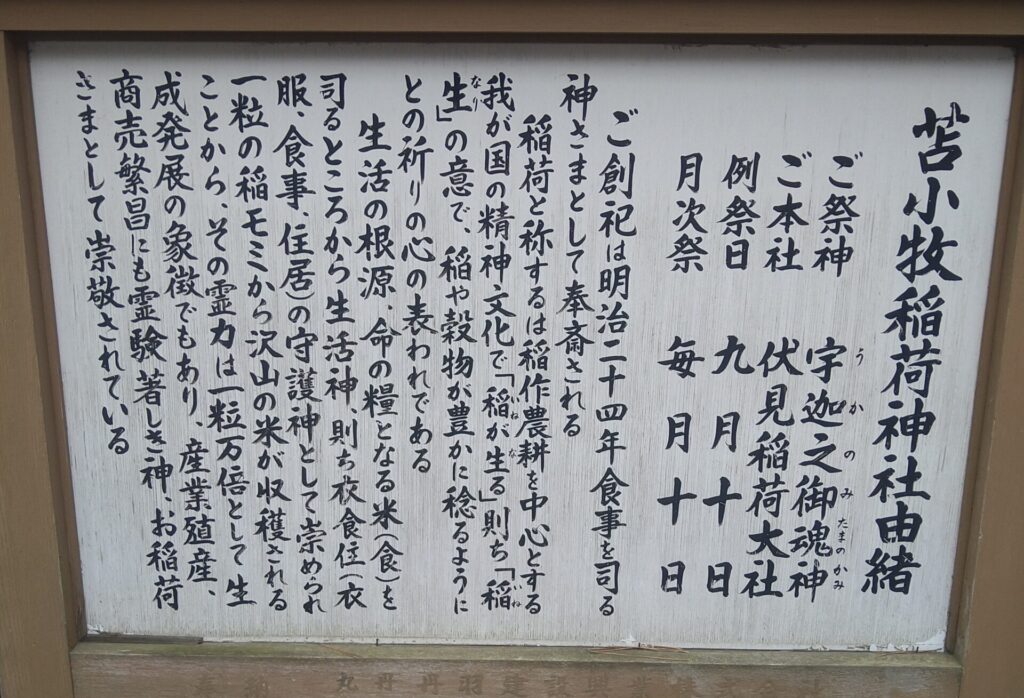 苫小牧稲荷神社由緒
ご祭神 宇迦之御魂神
うかのみたまのかみ
ご本社 伏見稲荷大社
例祭日 九月十日
月次祭 毎月十日
ご創祀は明治二十四年食事を司る
神さまとして奉斎される
稲荷と称するは稲作農耕を中心とする
我が国の精神文化で「稲が生る」則ち「稲
いね な いね
生」の意で、稲や穀物が豊かに稔るように
なり
との祈りの心の表われである
生活の根源、命の糧となる米(食)を
司るところから生活神、則ち衣食住(衣
服、食事、住居)の守護神として崇められ
一粒の稲モミから沢山の米が収穫される
ことから、その霊力は一粒万倍として生
成発展の象徴でもあり、産業殖産、
商売繁昌にも霊験著しき神、お稲荷
さまとして崇敬されている